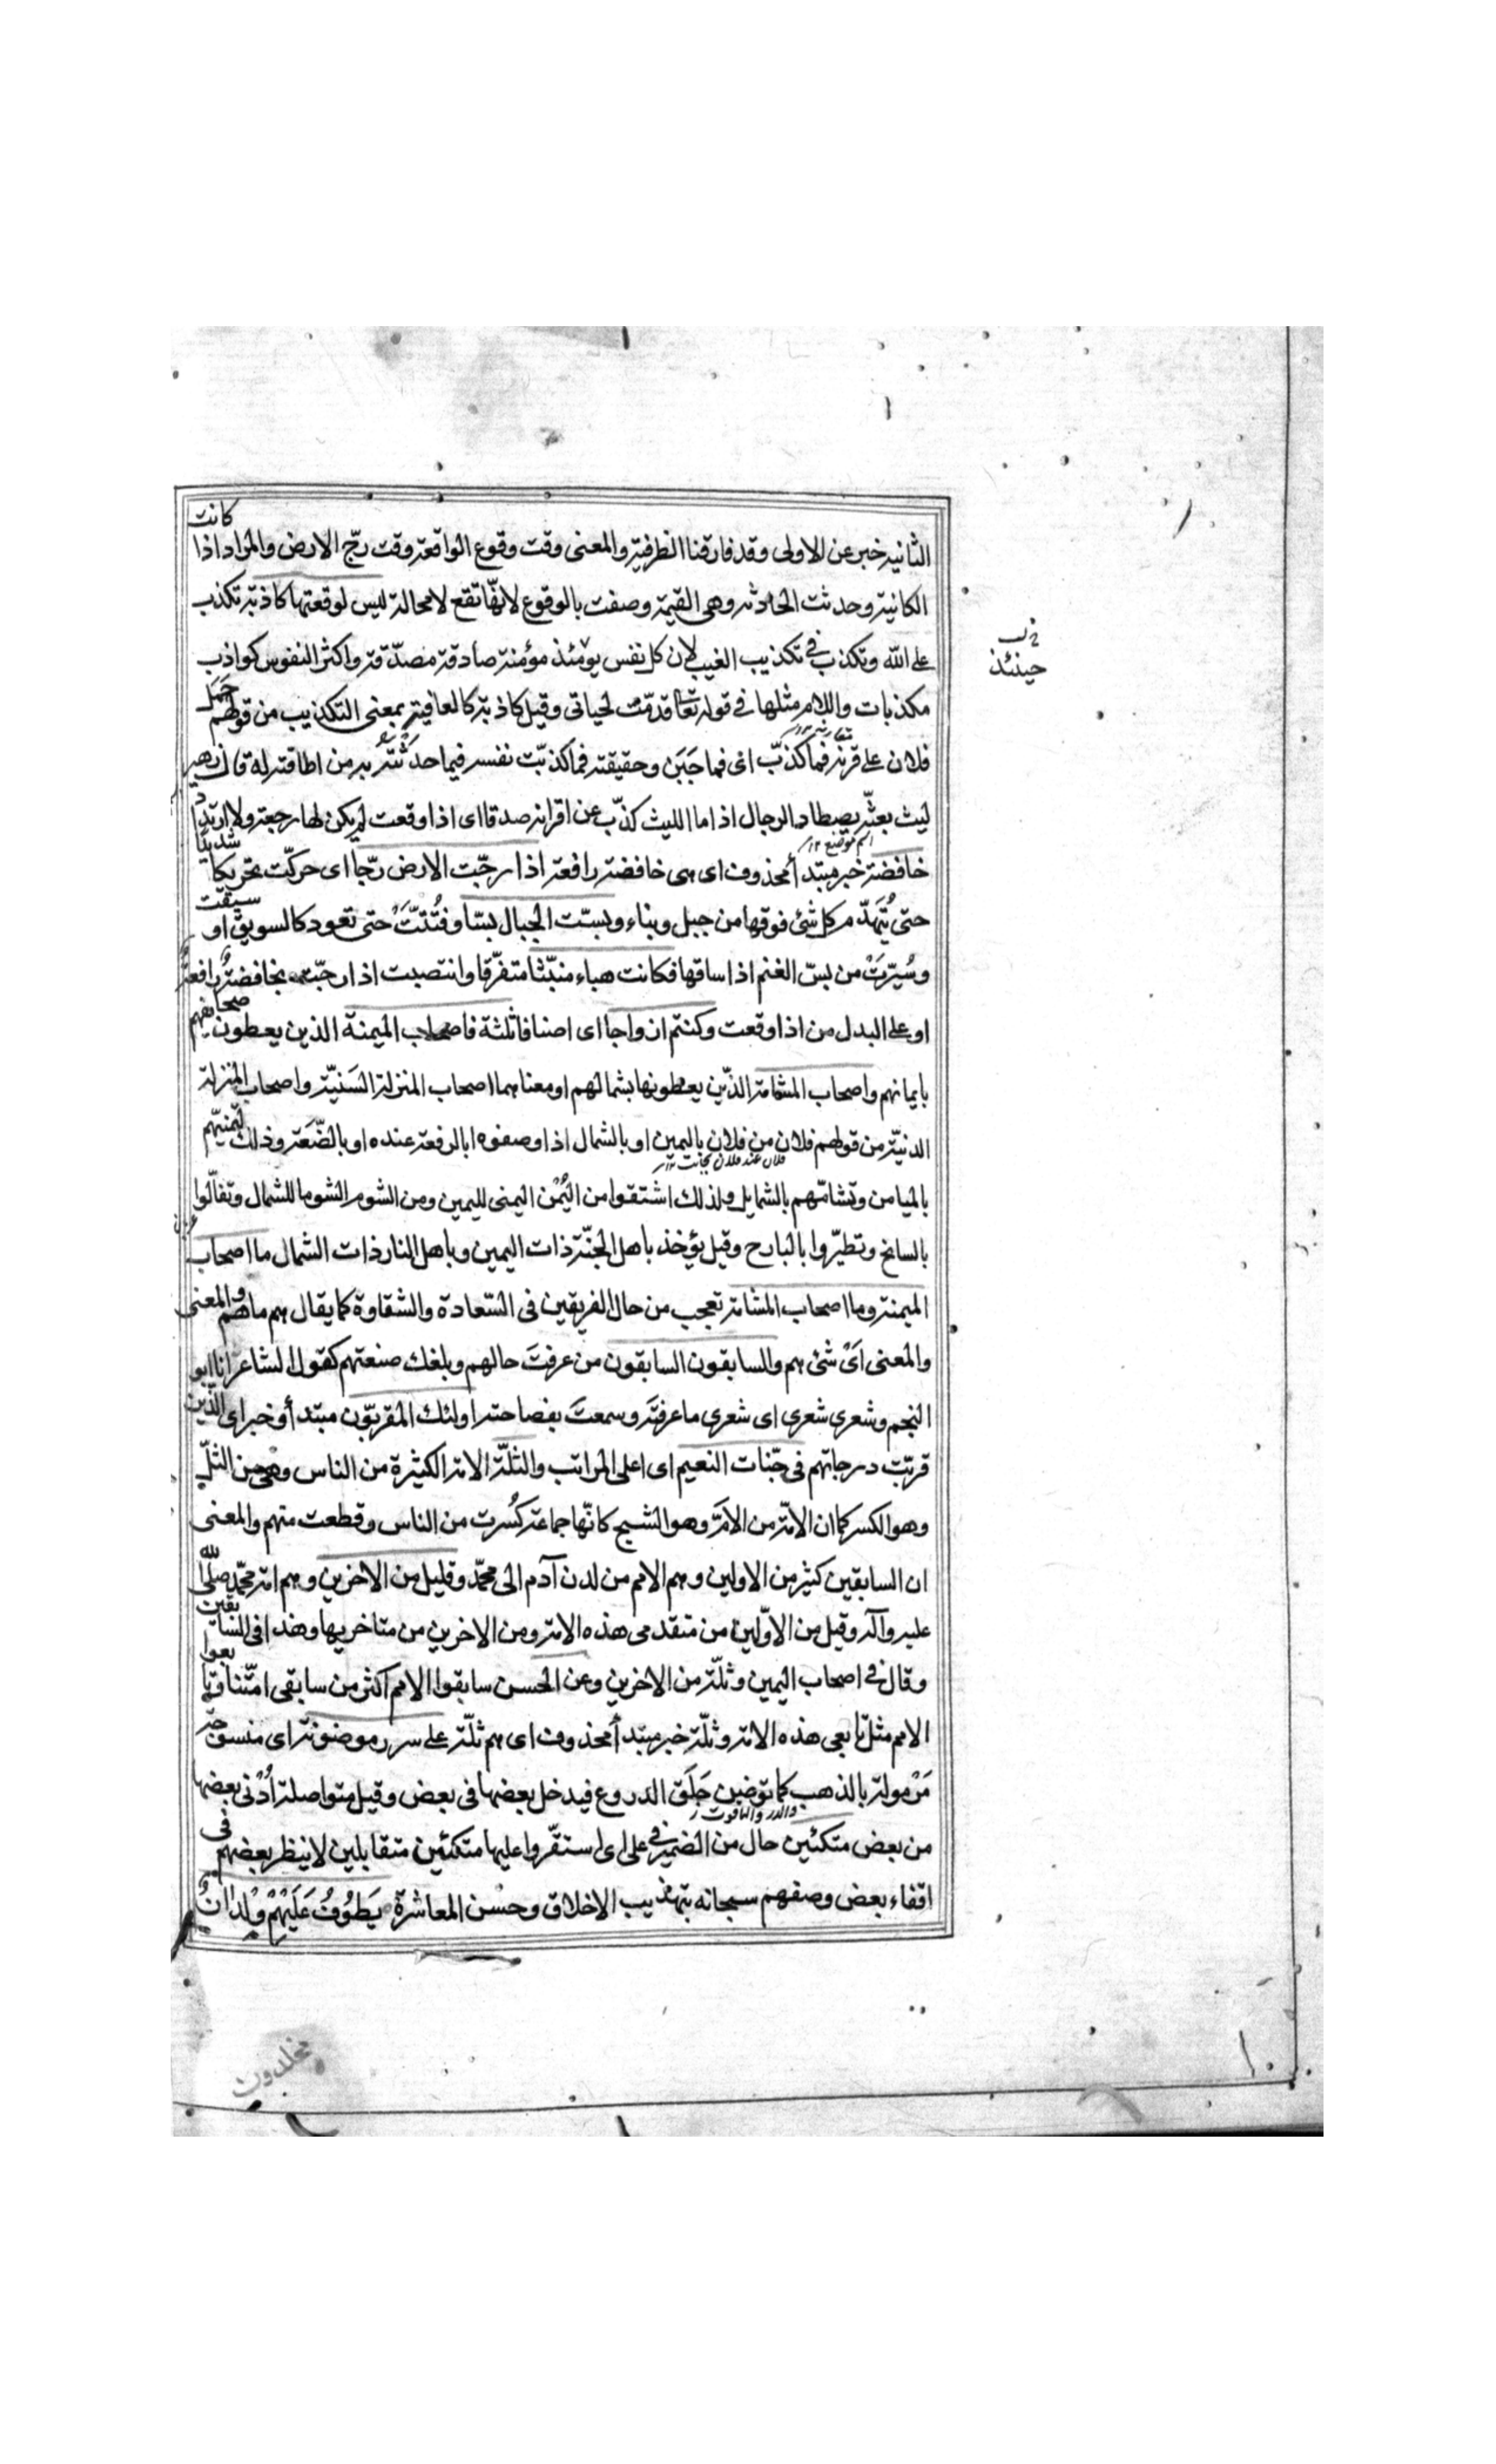 الثانية خبر عن الاولى وقد فارقنا الظرفية والمعنى وقت وقوع الواقعة وقت رجّ الارض والمراد اذا كانت
الكانية وحدثت الحادثة وهى القيمة وصفت بالوقوع لانّها تقع لامحالة ليس لوقعتها كاذبة تكذب
على الله وتكذب فى تكذيب الغيب لان كل نفس يومئذ مؤمنة صادقة مصدّقة واكثر النفوس كواذب
حينئذ
مكذبات واللام مثلها فى قوله تعا قدمّت لحياتى وقيل كاذبة كالعافية بمعنى التكذيب من قولهم حمل
فلان على قرنه فما كذّب اى فما جبَن وحقيقته فما كذبّت نفسه فيما حدثته به من اطاقته له قال زهير
ليث بعثّر يصطاد الرجال اذا ما الليث كذّب عن اقرانه صدقا اى اذا وقعت لم يكن لها رجعة ولا ارتداد
اسم موضع ١٢
خافضة خبر مبتدأ محذوف اى هى خافضة رافعة اذا رجّت الارض رجّا اى حركّت تحريكا شديدا
حتى يُنهَدّم كل شئ فوقها من جبل وبناء وبسّت الجبال بسّا وفُتّتَتْ حتى تعود كالسويق او سيقت
وسُيّرَتْ من بسّ الغنم اذا ساقها فكانت هباء منبثّا متفرّقا وانتصبت اذا رجّت بخافضة رافعة
او على البدل من اذا وقعت وكنتم ازواجا اى اصنافا ثلثة فاصحاب الميمنة الذين يعطون صحائفهم
بايمانهم واصحاب المشامة الذّين يعطونها بشمالهم او معناهما اصحاب المنزلة السَنيّة واصحاب المنزلة
الدنيّة من قولهم فلان من فلان باليمين او بالشمال اذا وصفوه بالرفعة عنده او بالضَّعَة وذلك لتيمنّهم
بالميامن وتشامّهم بالشمايل ولذلك اشتقوا من اليُمْن اليمنى لليمين ومن الشوم الشوما للشمال وتفآّلوا
بالسانح وتطيّروا بالبارح وقيل يؤخذ باهل الجنّة ذات اليمين وباهل النار ذات الشمال ما اصحاب
الميمنة وما اصحاب المشامة تعجب من حال الفريقين فى السّعادة والشقاوة كما يقال هم ماهم والمعنى
والمعنى اىّ شئ هم والسابقون السابقون من عرفتَ حالهم وبلغك صنعتهم كقول الشاعر انا ابو
النجم وشعرى شعرى اى شعرى ما عرفتَه وسمعتَ بفصاحته اولئك المقربّون مبتدأ وخبر اى الذين
قربّت درجاتهم فى جنّات النعيم اى اعلى المراتب والثلّة الامة الكثيرة من الناس وهى من الثلّ
وهو الكسر كما ان الامّة من الامّ وهو الشبح كانّها جماعة كُسرت من الناس وقطعت منهم والمعنى
ان السابقين كثير من الاولين وهم الامم من لدن آدم الى محمّد وقليل من الاخرين وهم امة محمّد صلّى الله
عليه وآله وقيل من الاوّلين من متقدمى هذه الامة ومن الاخرين من متاخريها وهذا فى السابقين
وقال فى اصحاب اليمين وثلّة من الاخرين وعن الحسن سابقوا الامم اكثر من سابقى امّتنا وتابعوا
الامم مثل تابعى هذه الامة وثلّة خبر مبتدأ محذوف اى هم ثلّة على سرر موضونة اى منسوجة
مَرْمولة بالذهب كما توضين حَلَق الدروع فيدخل بعضها فى بعض وقيل متواصلة اُدْنى بعضها
والدر والياقوت
من بعض متكئين حال من الضمير فى على اى استقّروا عليها متكئين متقابلين لا ينظر بعضهم فى
اقفاء بعض وصفهم سبحانه بتهذيب الاخلاق وحسْن المعاشرة يَطُوفُ عَلَيْهِمْ وِلْدانٌ
مخلدون